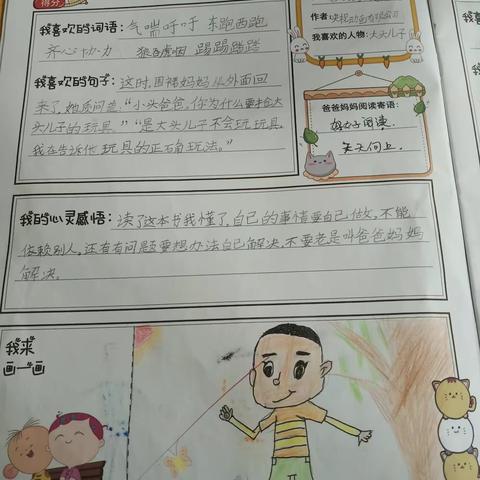 得分
作者:央视动画有限公司
我喜欢的人物:大头儿子
我喜欢的词语:气喘吁吁 东跑西跑
齐心协力 狼吞虎咽 踢踢踏踏
我喜欢的句子:这时,围裙妈妈从外面回
来了,她质问道:“小头爸爸,你为什么要抢大
头儿子的玩具。”“是大头儿子不会玩玩具,
我在告诉他玩具的正确玩法。”
爸爸妈妈阅读寄语:
好好阅读.
天天向上.
我的心灵感悟:读了这本书我懂了,自己的事情要自己做,不能
依赖别人,还有有问题要想办法自己解决,不要老是叫爸爸妈妈
解决。
我来
画一画